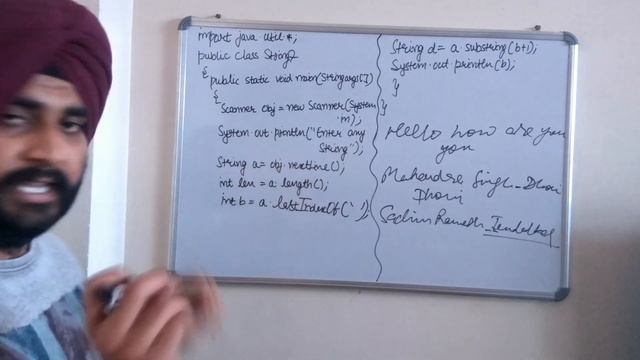 import java util.*;
public class String2
{ public static void main(String args[])
{
Scanner obj = new Scanner(System
.in);
System out println("Enter any
String");
String a = obj.nextline();
int len = a length();
int b = a.lastIndexOf(' ');
String d = a substring(b+1);
System.out.println(b);
}
}
Hello how are you
you
Mahendra Singh Dhoni
Dhoni
Sachin Ramesh Tendulkar